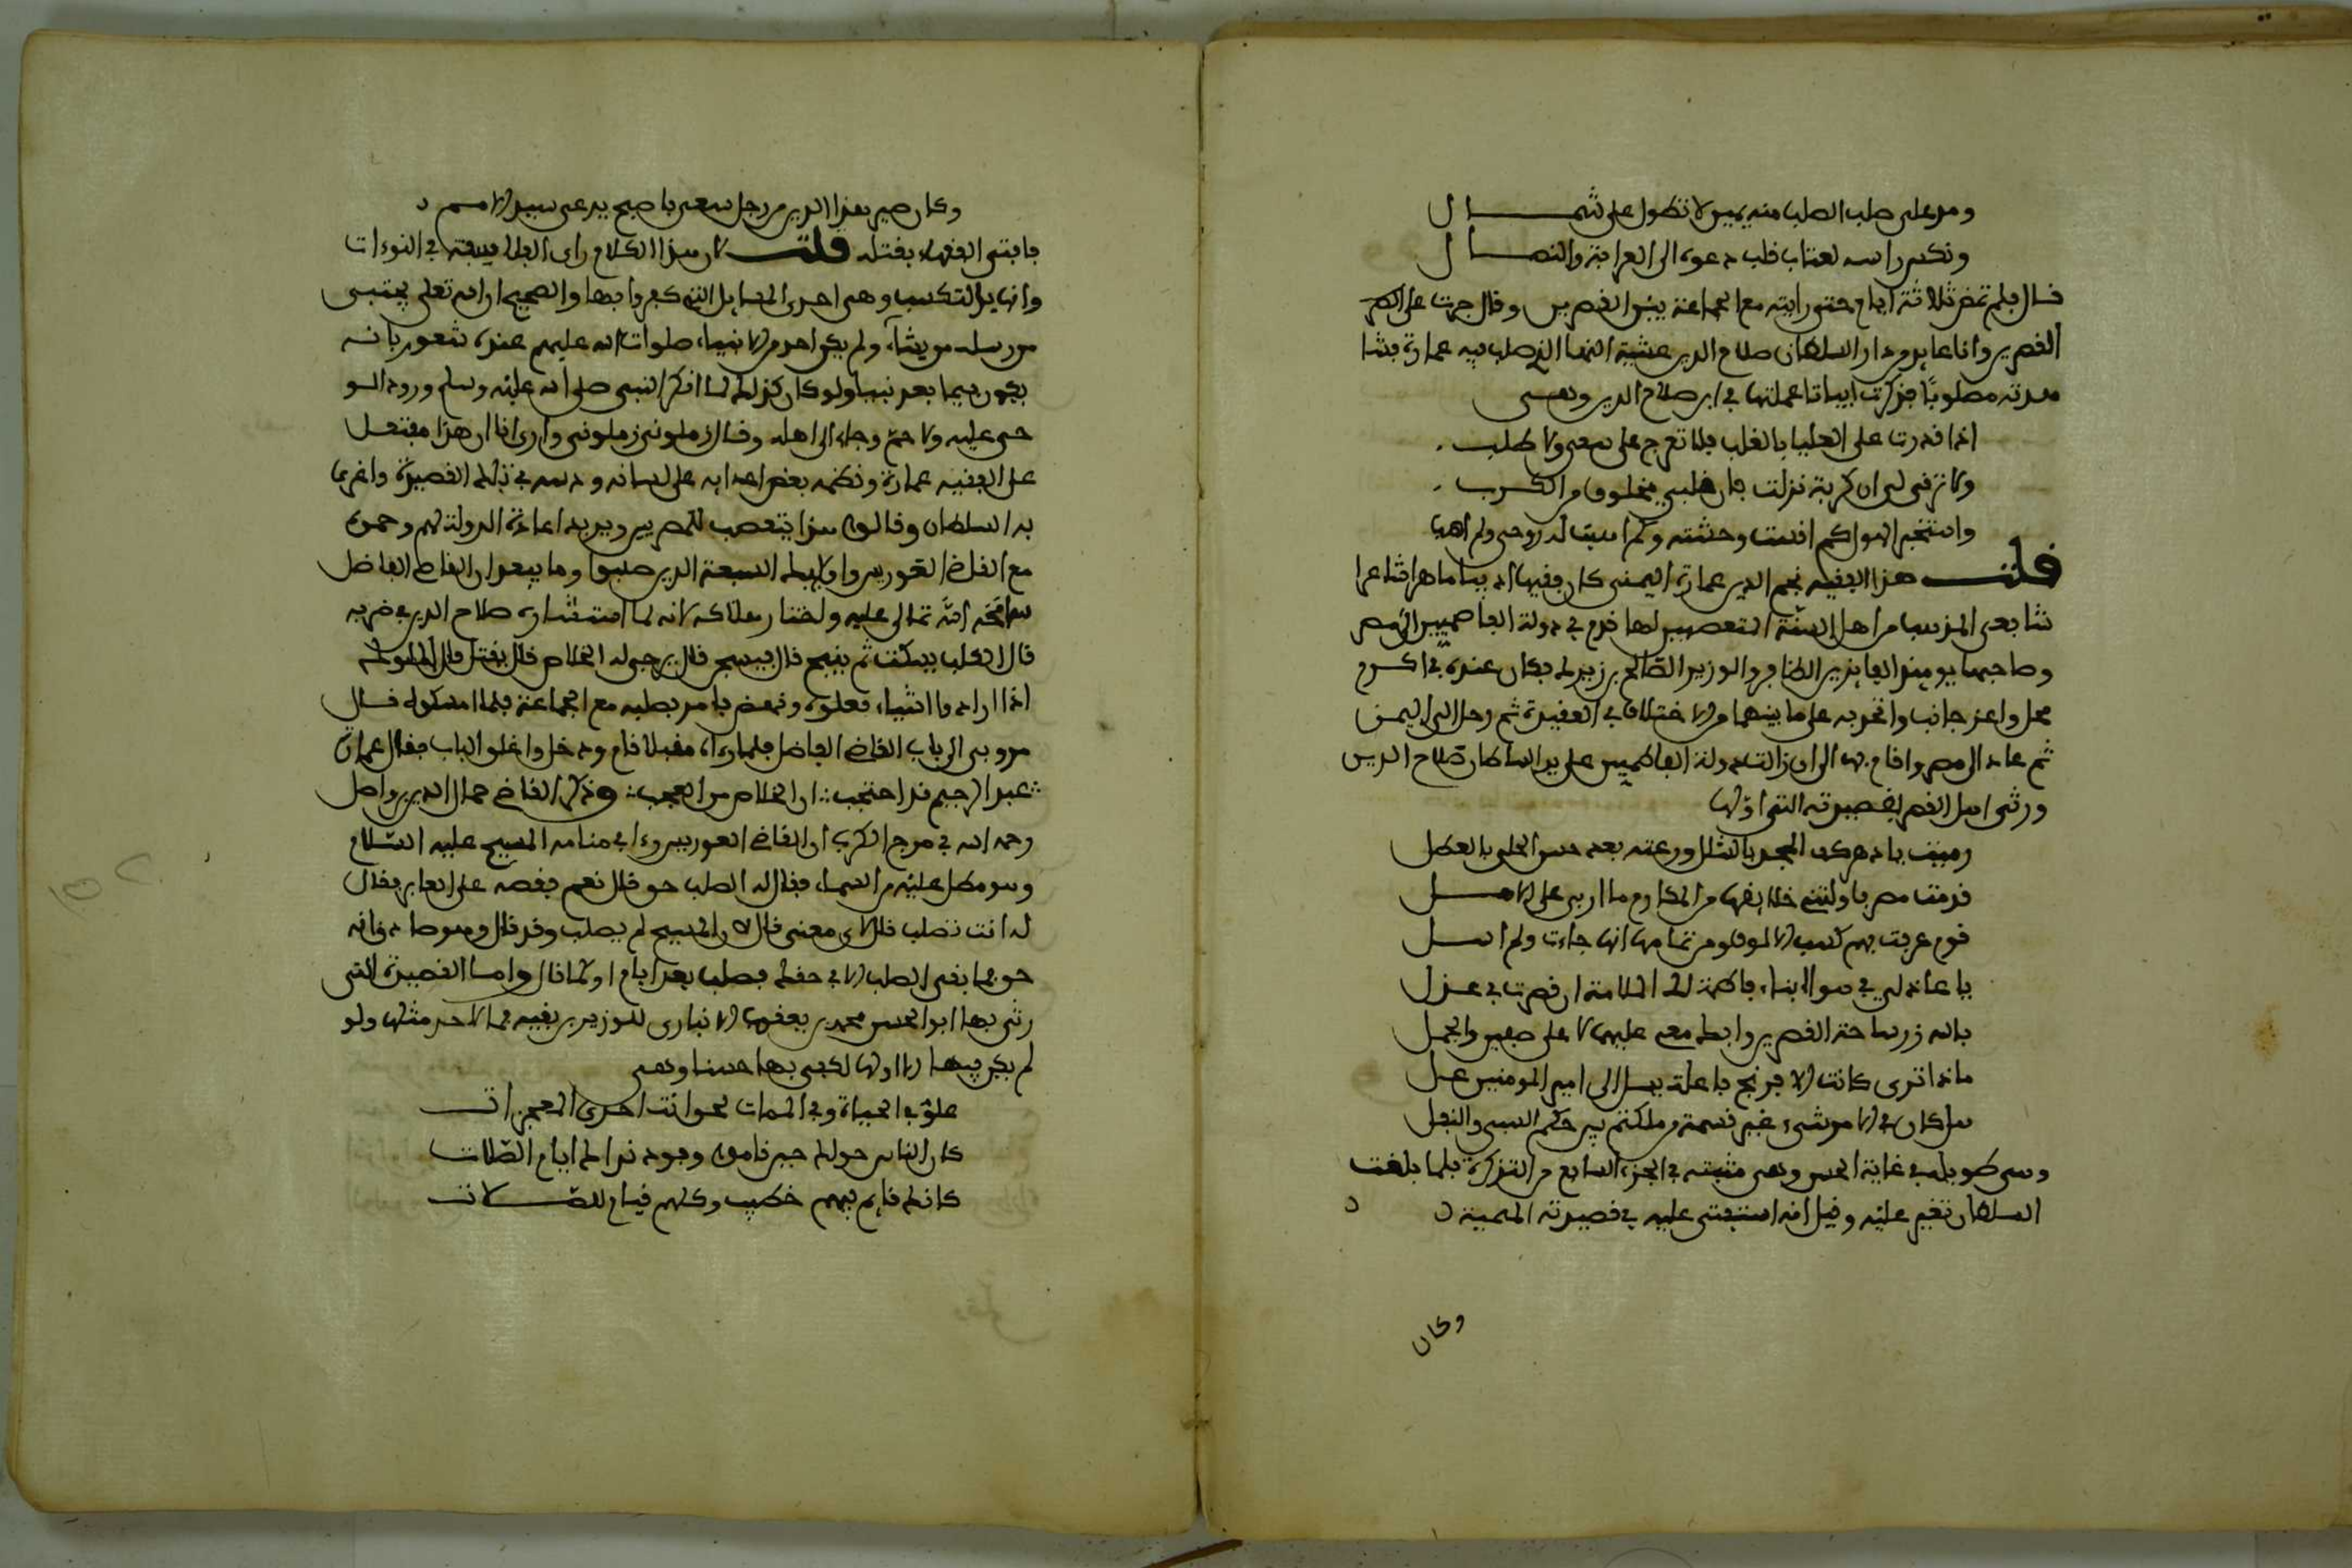 ومد على صليب الصلب منه يمين لا تطول على شمال
ونكس راسه لعتاب قلب دعوه الى الغواية والضلال
قال فلم تمض ثلاثة ايام حتى رايته مع الجماعة بين القصرين وقال جزت على
القصرين وانا عابر من دار السلطان صلاح الدين عشية النهار الذي صلب فيه عمارة فشا
هدته مصلوبا فذكرت ابياتا عملتها في ابن صلاح الدين وهي
اذا قدرت على العليا بالغلب فلا تعرج على سعي ولا طلب
ولا ترقى لي ان كربة نزلت فان قلبي مخلوق من الكرب
واستخبر الهول كم انست وحشته وكم وهبت له روحي ولم اهب
قلت هذا الفقيه نجم الدين عمارة اليمني كان فقيها اديبا ماهرا شاعرا
شافعي المذهب من اهل السنة المتعصبين لها قدم في دولة الفاطميين الى مصر
وصاحبها يومئذ الفايز بن الظافر والوزير الصالح بن زريك فكان عنده في اكرم
محل واعز جانب واتحد به على ما بينهما من الاختلاف في العقيدة ثم رحل الى اليمن
ثم عاد الى مصر واقام بها الى ان زالت دولة الفاطميين على يد السلطان صلاح الدين
ورثى اهل القصر بقصيدته التي اولها
رميت يا دهر كف المجد بالشلل ورعته بعد حسن الحلي بالعطل
قدمت مصر فاولتني خلايفها من المكارم ما اربى على الامل
قوم عرفت بهم كسب الالوف ومن تمامها انها جاءت ولم اسل
يا عاذلي في هوى ابناء فاطمة لك الملامة ان قصرت في عذل
بالله زر ساحة القصرين وابك معي عليهما لا على صفين والجمل
ماذا ترى كانت الافرنج فاعلة بنسل ال امير المومنين علي
هل كان في الامر شيء غير قسمة ما ملكتم بين حكم السبي والنفل
وهي طويلة في غاية الحسن وهي مثبتة في الجزء السابع من التذكرة فلما بلغت
السلطان تغير عليه وقيل انه استفتى عليه في قصيدته الميمية
وكان
وكان صير هذا الدين من رجل سعى فاصبح يدعى سيد الامم
فافتى الفقهاء بقتله قلت لان هذا الكلام راي الفلاسفة في النبوءات
وانها بالتكسب وهي احدى المسايل التي كفروا بها والصحيح ان الله تعلى يجتبي
من رسله من يشاء ولم يكن احد من الانبياء صلوات الله عليهم عنده شعور بانه
يكون فيما بعد نبيا ولو كان كذلك لما انكر النبي صلى الله عليه وسلم ورود الو
حي عليه ولا حم وجاء الى اهله وقال زملوني زملوني وارى انا ان هذا مفتعل
على الفقيه عمارة ونظمه بعض اعدايه على لسانه ودسه في تلك القصيدة واغرى
به السلطان وقالوا هذا يتعصب للمصريين ويريد اعادة الدولة لهم وحموه
مع القاضي العوريس واولايك السبعة الذين صلبوا وما يبعد ان القاضي الفاضل
سامحه الله تمالى عليه واختار هلاكه لانه لما استشاره صلاح الدين في ضربه
قال الكلب يسكت ثم ينبح قال فيسجن قال يرجى له الخلاص قال يقتل قال الملوك
اذا ارادوا شيا فعلوه ونهض فامر بصلبه مع الجماعة فلما امسكوه قال
مروا بي الى باب القاضي الفاضل فلما رءاه مقبلا قام ودخل واغلق الباب فقال عمارة
عبد الرحيم قد احتجب ان الخلاص من العجب وذكر القاضي جمال الدين بن واصل
رحمه الله في مفرج الكروب ان القاضي العوريس رءا في منامه المسيح عليه السلام
وهو مطل عليه من السماء فقال له الصلب حق قال نعم فقصه على العابر فقال
له انت تصلب قال لاي معنى قال لان المسيح لم يصلب وقد قال وهو صادق انه
حق فما بقي الصلب الا في حقك فصلب بعد ايام او كما قال واما القصيدة التي
رثى بها ابو الحسن محمد بن يعقوب الانباري للوزير بن بقية فما لاحد مثلها ولو
لم يكن فيها الا اولها لكفى بها حسنا وهي
علو في الحياة وفي الممات لحق انت احدى المعجزات
كان الناس حولك حين قاموا وفود نداك ايام الصلات
كانك قايم فيهم خطيب وكلهم قيام للصلات